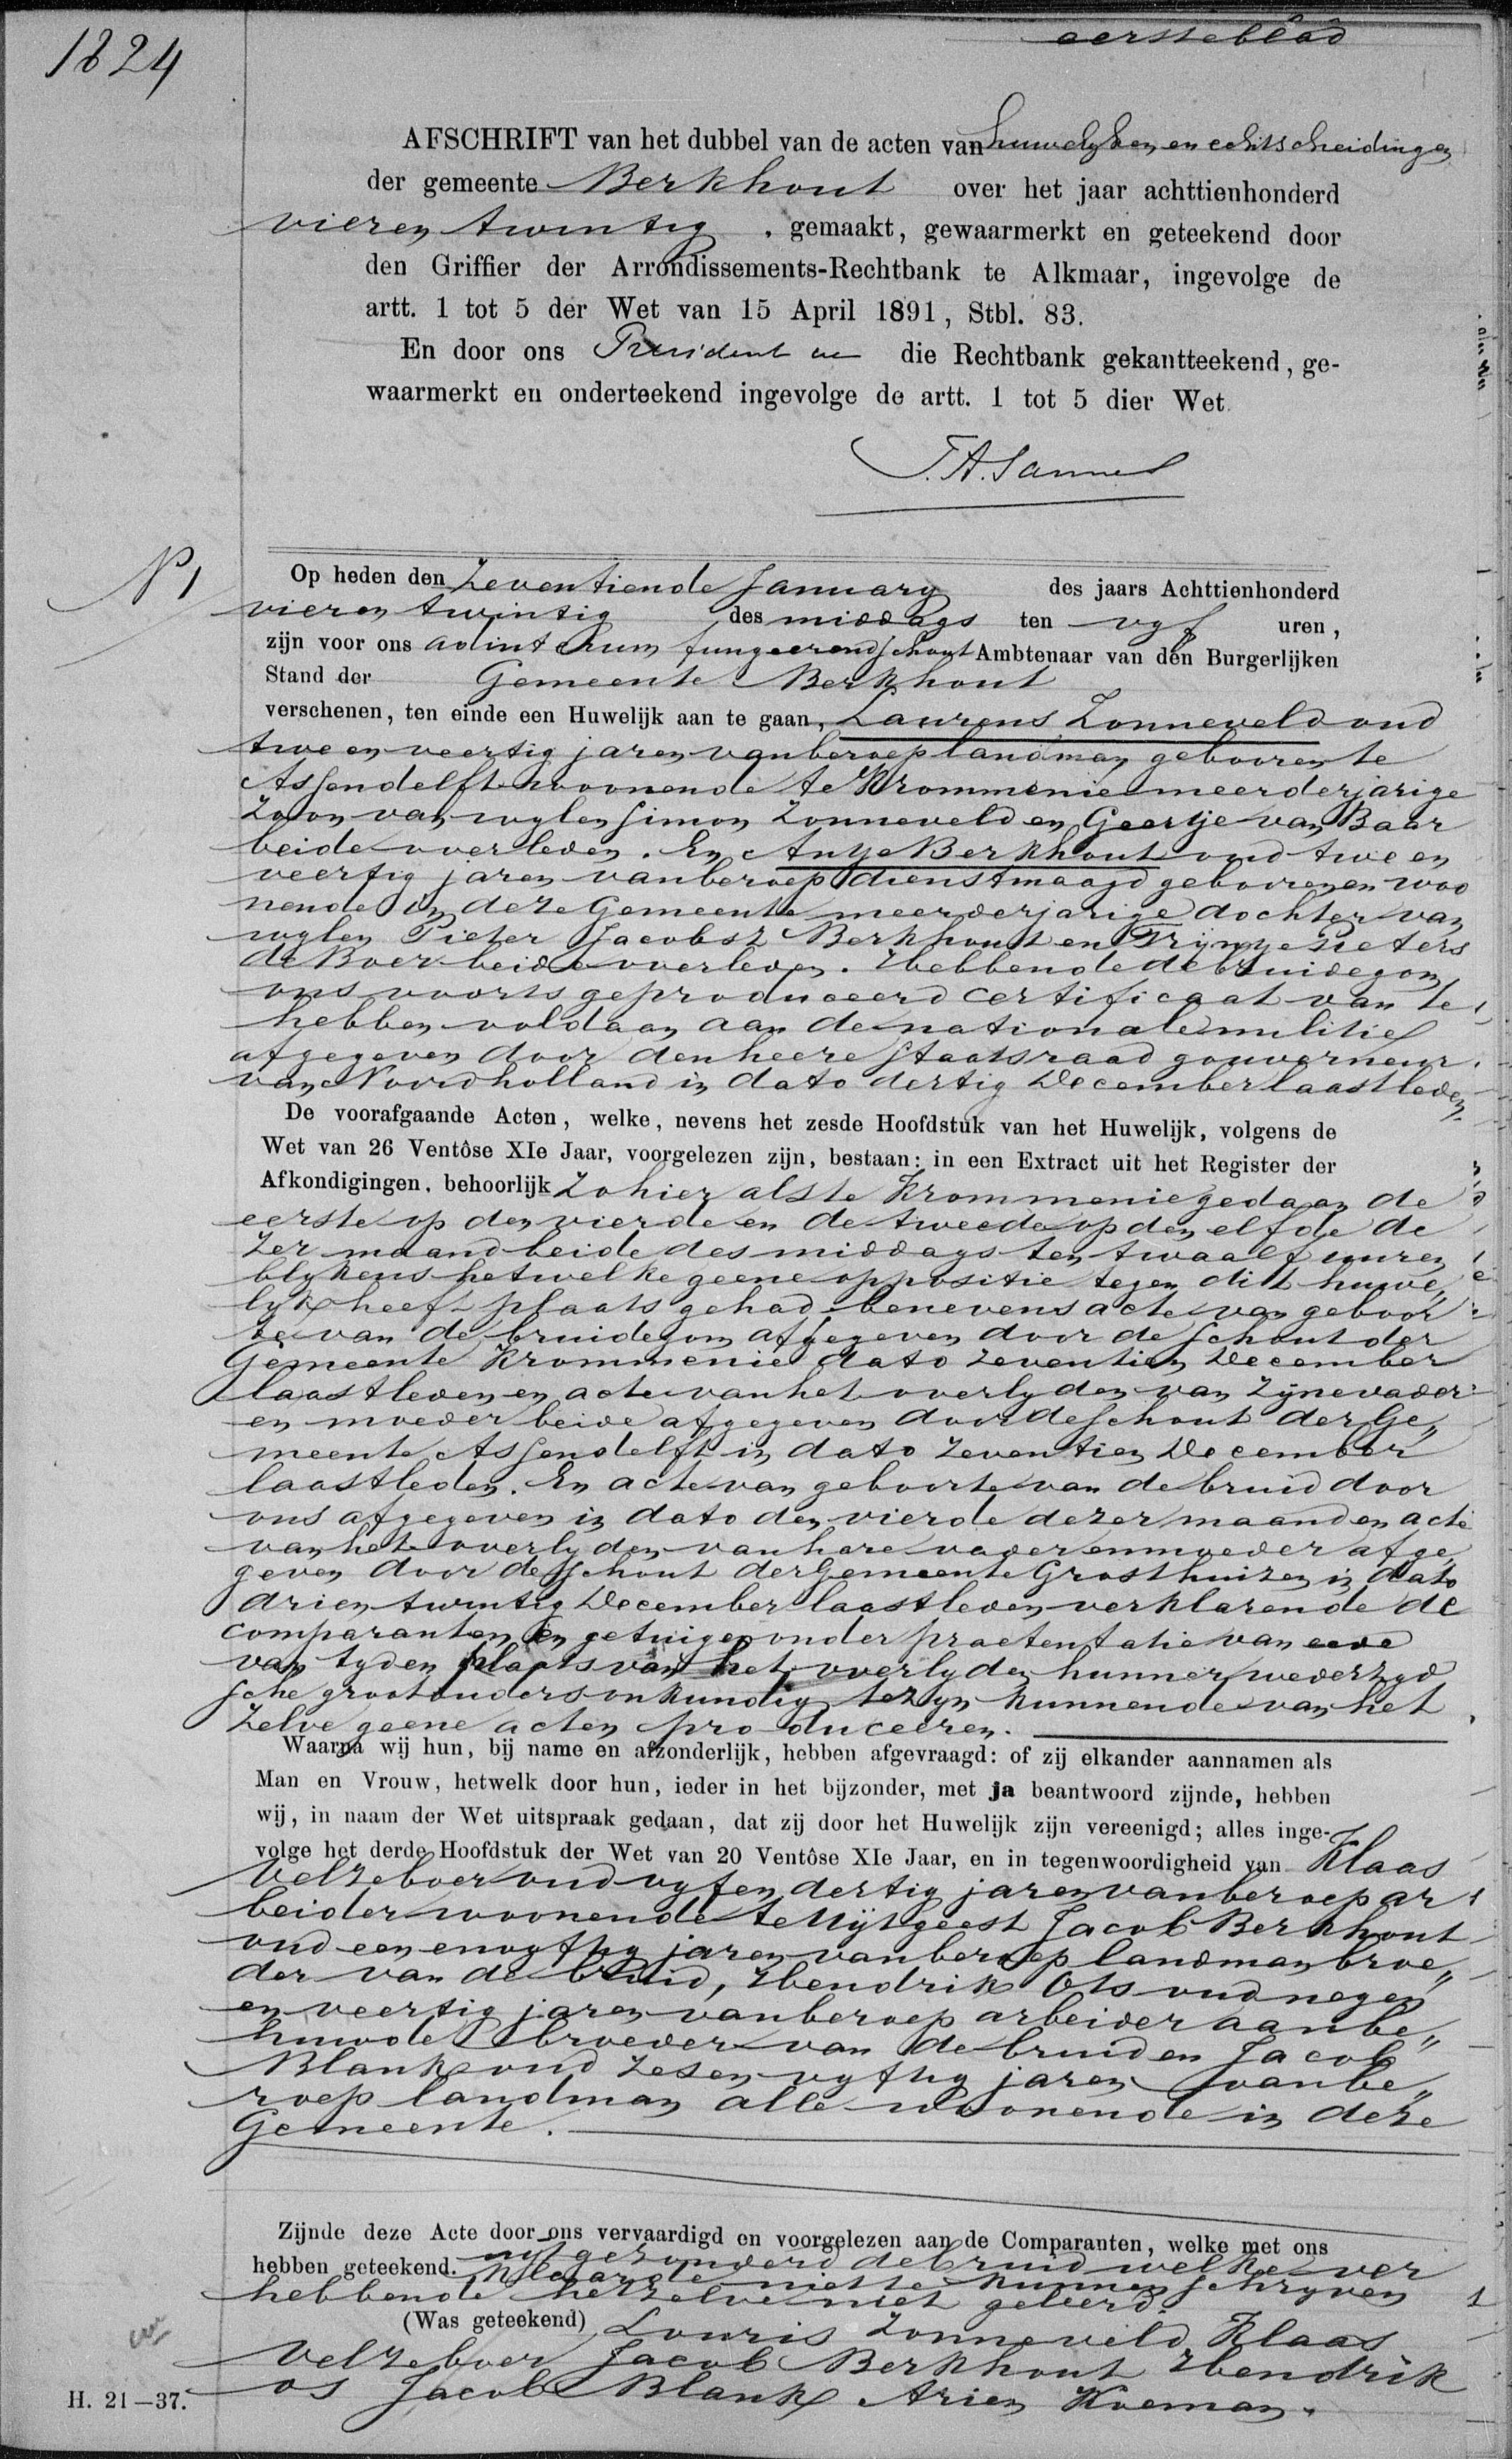 1824
eersteblad
AFSCHRIFT van het dubbel van de acten van huwelyken en echtscheidingen
der gemeente Berkhout over het jaar achttienhonderd
vieren twintig, gemaakt, gewaarmerkt en geteekend door
den Griffier der Arrondissements-Rechtbank te Alkmaar, ingevolge de
artt. 1 tot 5 der Wet van 15 April 1891, Stbl. 83.
En door ons President in die Rechtbank gekantteekend, ge-
waarmerkt en onderteekend ingevolge de artt. 1 tot 5 dier Wet.
No 1
Op heden den Zeventiende January des jaars Achttienhonderd
vieren twintig des middags ten vyf uren,
zijn voor ons adinterum fungeerend Schout Ambtenaar van den Burgerlijken
Stand der Gemeente Berkhout
verschenen, ten einde een Huwelijk aan te gaan, Laurens Zonneveld oud
twee en veertig jaren van beroep landman gebooren te
Assendelft woonende te Krommenie meerderjarige
Zoon van wylen Simon Zonneveld en Geertje van Baar
beide overleden. En Antje Berkhout oud twee en
veertig jaren van beroep dienstmaagd gebooren en woo
nende in deze Gemeente meerderjarige dochter van
wylen Pieter Jacobsz Berkhout en Trijntje Pieters
de Boer beide overleden. Hebbende de bruidegom
ons voorts geproduceerd certificaat van te
hebben voldaan aan de nationale militie
afgegeven door den heere Staatsraad gouverneur
van Noordholland in dato dertig December laastleden
De voorafgaande Acten, welke, nevens het zesde Hoofdstuk van het Huwelijk, volgens de
Wet van 26 Ventôse XIe Jaar, voorgelezen zijn, bestaan: in een Extract uit het Register der
Afkondigingen, behoorlijk Zo hier als te Krommenie gedaan de
eerste op den vierde en de tweede op den elfde de
zer maand beide des middags ten twaalf uuren
blykens hetwelke geene oppositie tegen dit huwe„
lyk heeft plaats gehad benevens acte van geboor
te van de bruidegom afgegeven door de Schout der
Gemeente Krommenie dato zeventien December
laastleden en acte van het overlyden van Zijne vader
en moeder beide afgegeven door de Schout der Ge„
meente Assendelft in dato zeventien December
laastleden. En acte van geboorte van de bruid door
ons afgegeven in dato den vierde dezer maand en acte
van het overlyden van hare vader en moeder afge
geven door de Schout der Gemeente Grosthuizen in dato
drien twintig December laastleden verklarende de
comparanten en getuigen onder praetentatie van eede
van tyd en plaats van het overlyden hunner wederzyd
sche grootouders onkundig te zyn kunnende van het
zelve geene acten produceeren.
Waarna wij hun, bij name en afzonderlijk, hebben afgevraagd: of zij elkander aannamen als
Man en Vrouw, hetwelk door hun, ieder in het bijzonder, met ja beantwoord zijnde, hebben
wij, in naam der Wet uitspraak gedaan, dat zij door het Huwelijk zijn vereenigd; alles inge-
volge het derde Hoofdstuk der Wet van 20 Ventôse XIe Jaar, en in tegenwoordigheid van Klaas
Velzeboer oud vyfen dertig jaren van beroep ar
beider woonende te Uijtgeest Jacob Berkhout
oud een envyftig jaren van beroep landman broe„
der van de bruid, Hendrik Ots oud negen
en veertig jaren van beroep arbeider aanbe„
huwde broeder van de bruid en Jacob
Blank oud zesen vyftig jaren van be„
roep landman alle woonende in deze
Gemeente.
Zijnde deze Acte door ons vervaardigd en voorgelezen aan de Comparanten, welke met ons
hebben geteekend. uitgezonderd de bruid welke ver
klaarde niet te kunnen schryven
hebbende hetzelve niet geleerd.
(Was geteekend) Louris Zonneveld Klaas
Velzeboer Jacob Berkhout Hendrik
os Jacob Blank Arien Koeman.
H. 21—37.